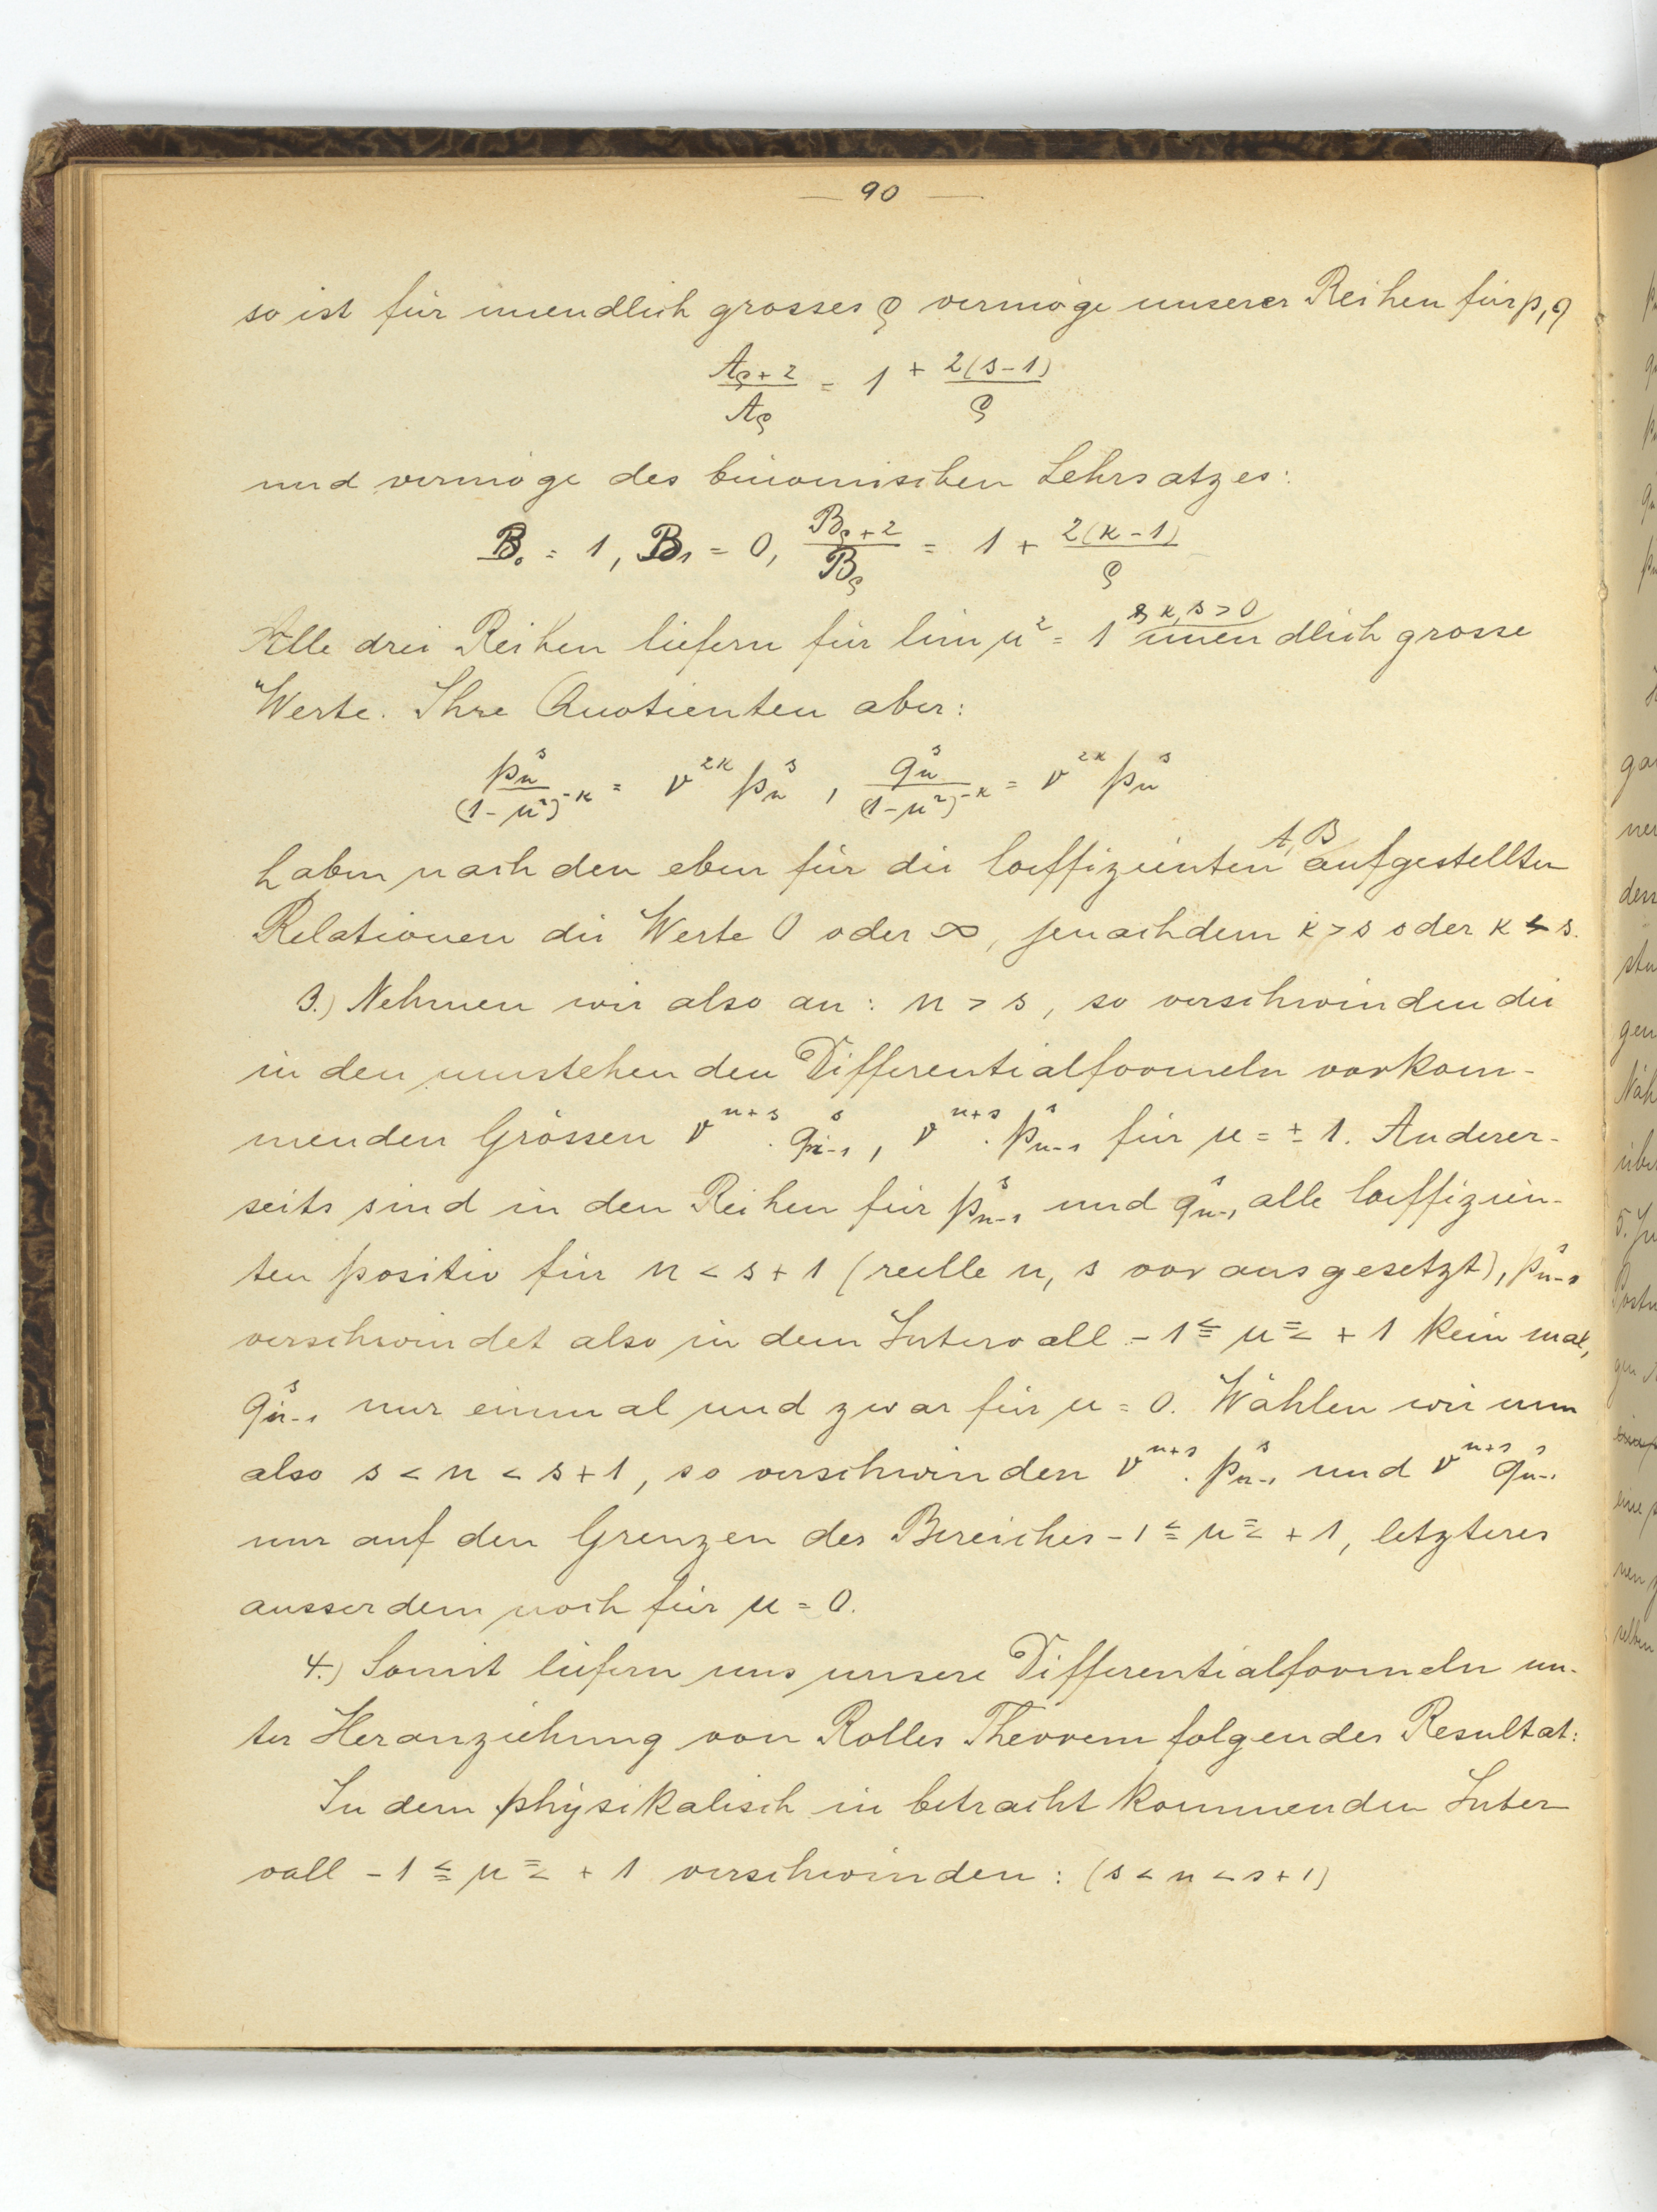 — 90 —
so ist für unendlich grosses ϱ vermöge unserer Reihen für p, q
A_{ϱ+2}/A_ϱ = 1 + 2(s-1)/ϱ
und vermöge des binomischen Lehrsatzes:
B_0 = 1, B_1 = 0, B_{ϱ+2}/B_ϱ = 1 + 2(κ-1)/ϱ
Alle drei Reihen liefern für lim μ² = 1 κ, s > 0 unendlich grosse
Werte. Ihre Quotienten aber:
p_n^s/(1-μ²)^{-κ} = ν^{2κ} p_n^s, q_n^s/(1-μ²)^{-κ} = ν^{2κ} p_n^s
haben nach den eben für die Coeffizienten A, B aufgestellten
Relationen die Werte 0 oder ∞, jenachdem κ > s oder κ < s.
3.) Nehmen wir also an: n > s, so verschwinden die
in den umstehenden Differentialformeln vorkom-
menden Grössen ν^{n+s} . q_{n-1}^s, ν^{n+s} . p_{n-1}^s für μ = ± 1. Anderer-
seits sind in den Reihen für p_{n-1}^s und q_{n-1}^s alle Coeffizien-
ten positiv für n < s + 1 (reelle n, s vorausgesetzt), p_{n-1}^s
verschwindet also in dem Intervall - 1 ≦ μ ≦ + 1 keinmal,
q_{n-1}^s nur einmal und zwar für μ = 0. Wählen wir nun
also s < n < s + 1, so verschwinden ν^{n+s} . p_{n-1}^s und ν^{n+s} q_{n-1}^s
nur auf den Grenzen des Bereiches - 1 ≦ μ ≦ + 1, letzteres
ausserdem noch für μ = 0.
4.) Somit liefern uns unsere Differentialformeln un-
ter Heranziehung von Rolles Theorem folgendes Resultat:
In dem physikalisch in betracht kommenden Inter
vall - 1 ≦ μ ≦ + 1 verschwinden: (s < n < s + 1)